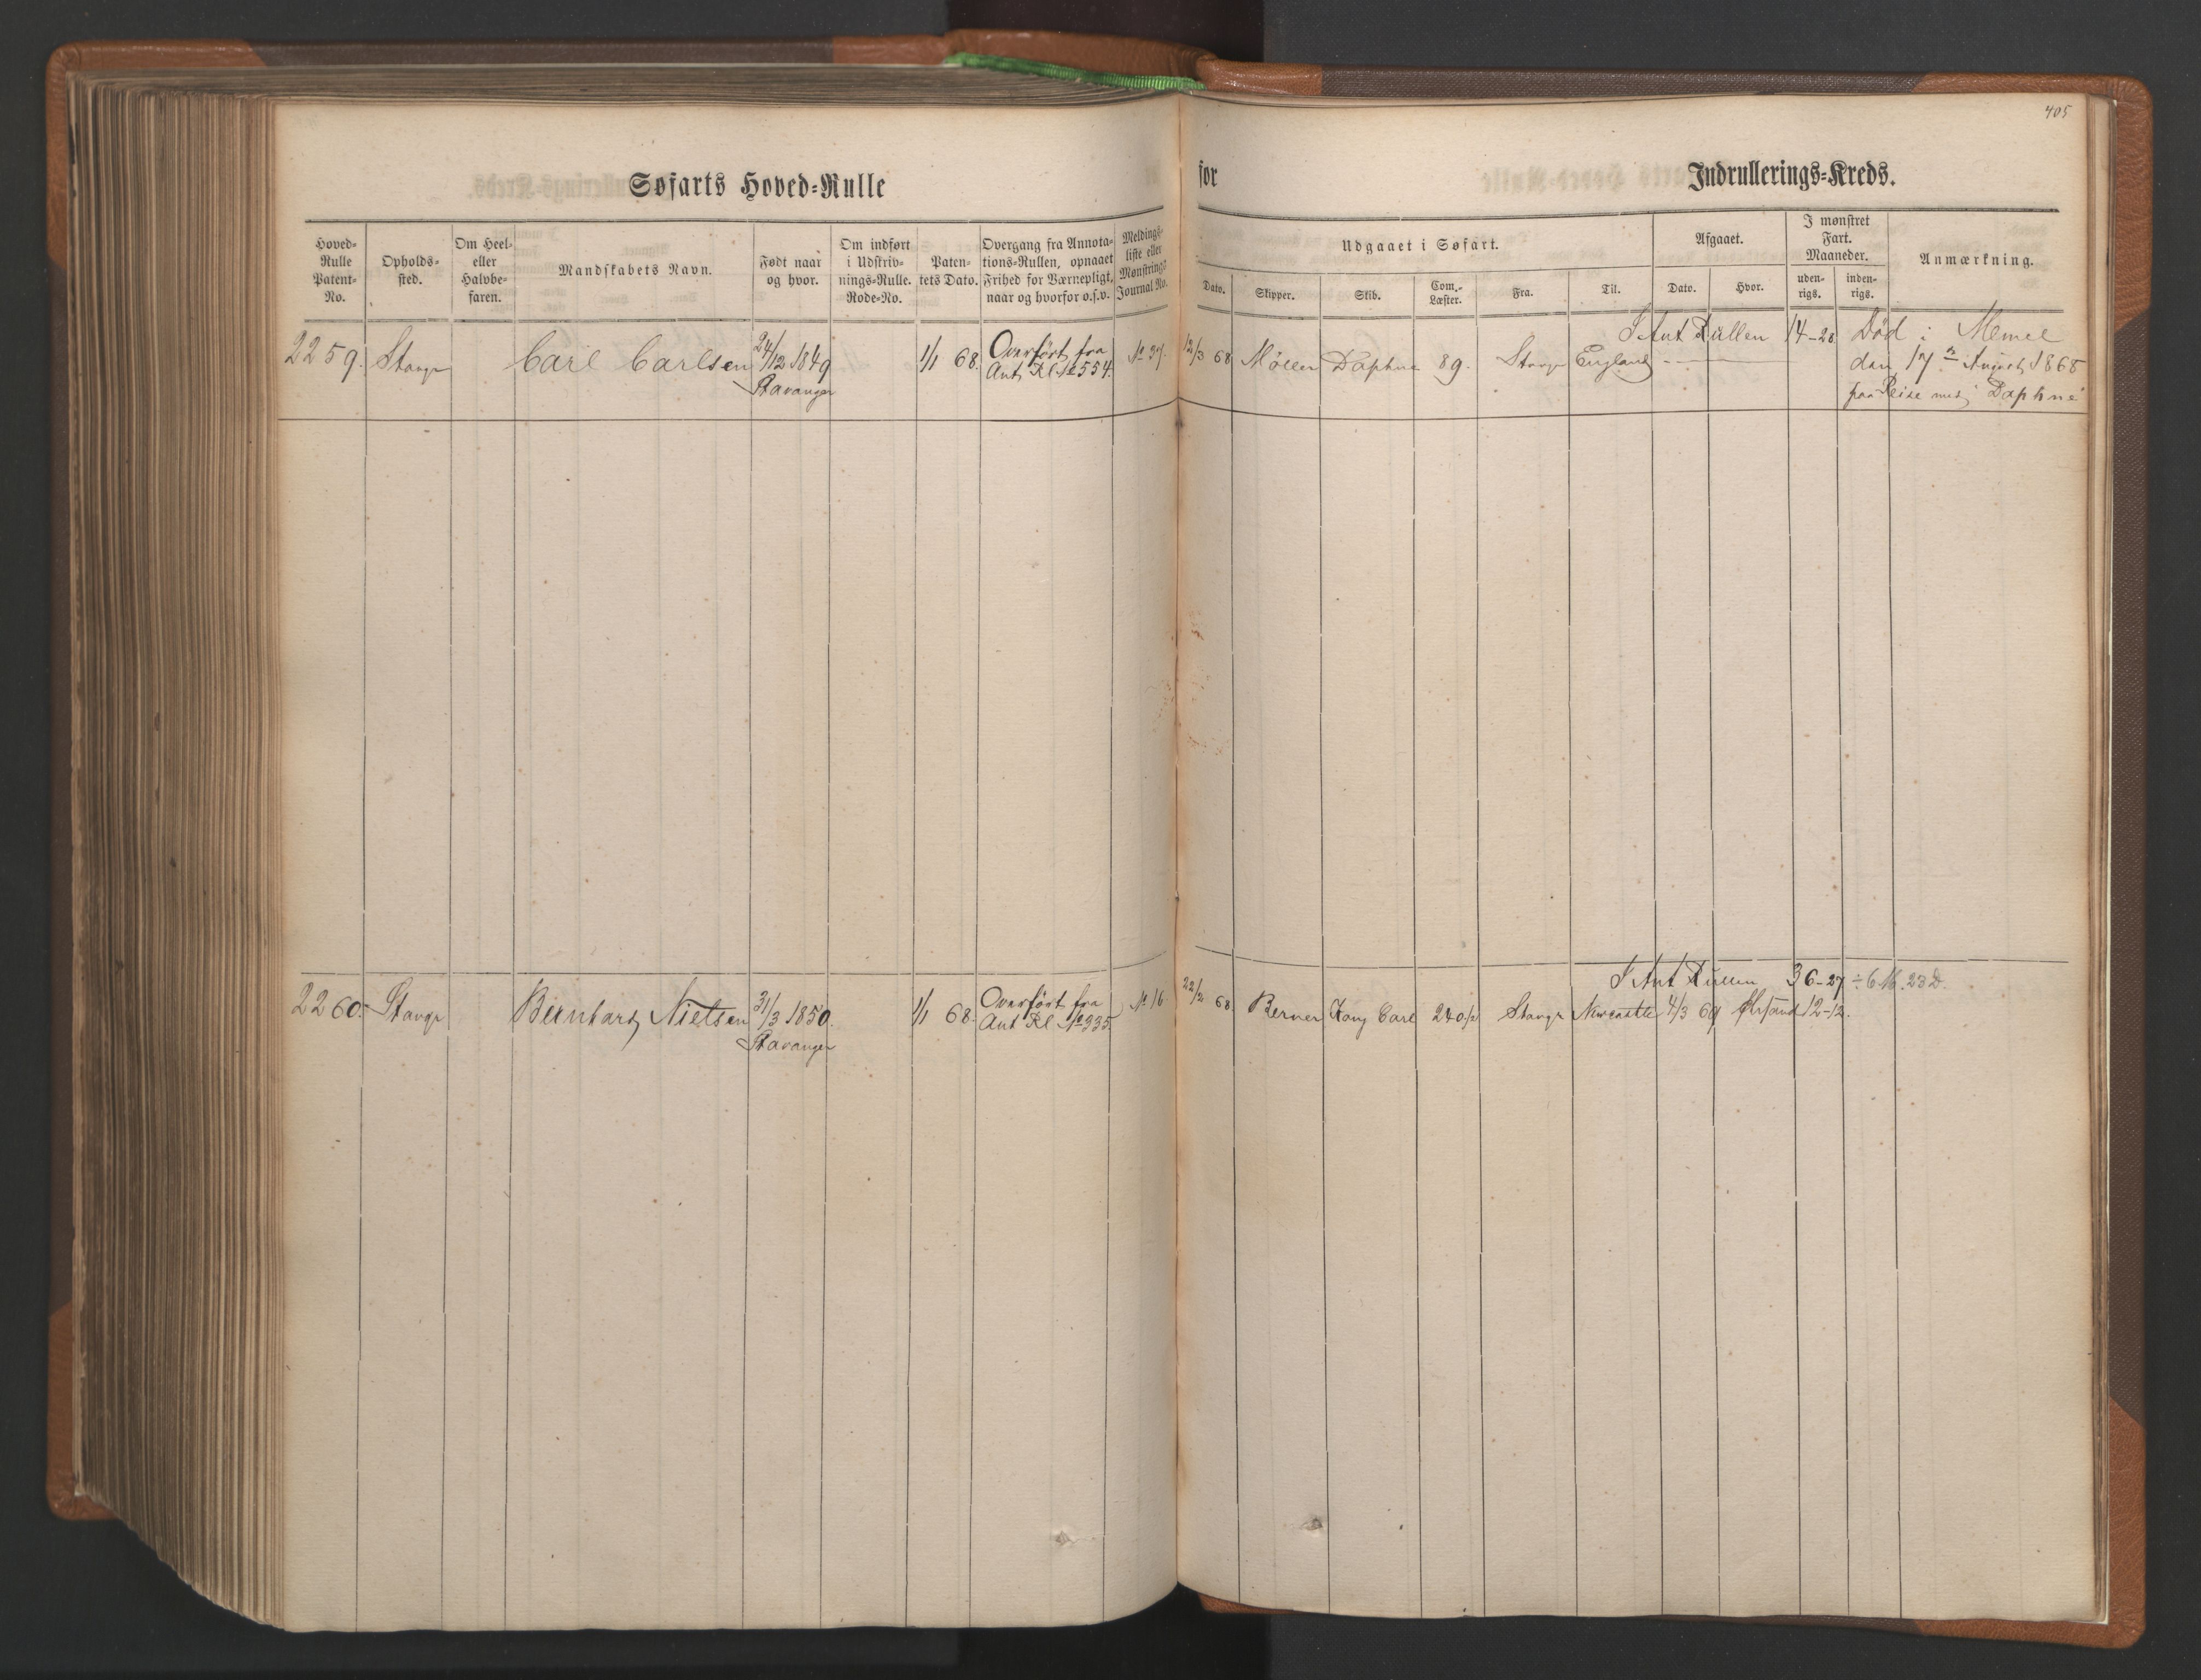 405
Søfarts Hoved=Rulle for Indrullerings=Kreds.
Hoved=Rulle Patent=No.
Opholds=sted.
Om Heel= eller Halvbe=faren.
Mandskabets Navn.
Født naar og hvor.
Om indført i Udskriv=nings=Rulle. Rode=No.
Paten=tets Dato.
Overgang fra Annota=tions=Rullen, opnaaet Frihed for Værnepligt, naar og hvorfor o.s.v.
Meldings=liste eller Mønstrings Journal No.
Udgaaet i Søfart.
Dato.
Skipper.
Skib.
Com.=Læster.
Fra.
Til.
Afgaaet.
Dato.
Hvor.
I mønstret Fart. Maaneder.
uden=rigs.
inden=rigs.
Anmærkning.
I Ant Rullen 14-28 Død i Memel
2259. Stavgr Carl Carlsen 24/12 1849 1/1 68. Overført fra № 37. 12/3 68 Möller Daphne 89. Stavgr England den 17 August 1868
Stavanger Ant Rl. № 554. paa Reise med Daphne
I Ant Rullen 36-27 ÷ 6 M. 23 D.
2260. Stavgr Bernhard Nielsen 31/3 1850. 1/1 68. Overført fra № 16 22/2 68. Berner Kong Carl 240 1/2 Stavgr Newcastle 4/3 69 Chrsand 12-12.
Stavanger Ant Rl № 335